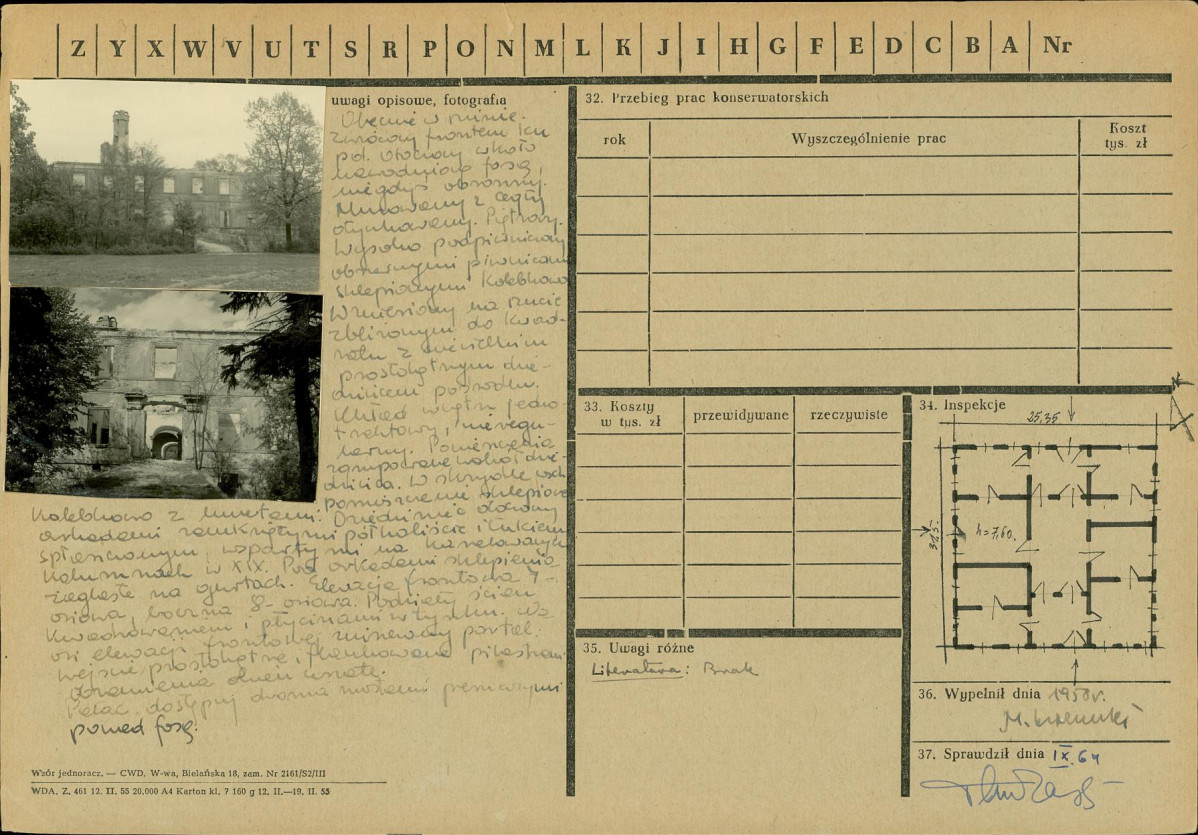 Z Y X W V U T S R P O N M L K J I H G F E D C B A Nr
uwagi opisowe, fotografia
Obecnie w ruinie.
Zwrócony frontem ku
poł. Otoczony wkoło
nawodnioną fosą,
niegdyś obronny.
Murowany z cegły
otynkowany. Piętrowy.
Wysoko podpiwniczony
obszernymi piwnicami
sklepionymi kolebkowo
Wzniesiony na rzucie
zbliżonym do kwad-
ratu z niewielkim
prostokątnym dzie-
dzińcem pośrodku.
Układ wnętrz jedno-
traktowy, nieregu-
larny. Pomieszczenia
zgrupowane wokół dzie-
dzińca. W skrzydle wsch
pomieszczenie sklepione
kolebkowo z lunetami. Dziedziniec otoczony
arkadami zamkniętymi półkoliście i łukiem
spłaszczonym, wspartymi na kanelowanych
kolumnach w XIX. Pod arkadami sklepienia
żaglaste na gurtach. Elewacja frontowa 9-
osiowa, boczna 8-osiowa. Podziały ścian
i płycinami w tynku. Na
osi elewacji frontowej portal.
Wejście prostokątne, flankowane pilastrami
Obramienia okien
Pałac dostępny dwoma mostami
ponad fosą.
Wzór jednoracz. — CWD, W-wa, Bielańska 18, zam. Nr 2161/S2/III
WDA. Z. 461 12. II. 55 20.000 A4 Karton kl. 7 160 g 12. II.—19. II. 55
32. Przebieg prac konserwatorskich
rok
Wyszczególnienie prac
Koszt
tys. zł
33. Koszty
w tys. zł
przewidywane
rzeczywiste
34. Inspekcje
25,35
h=7,60.
35. Uwagi różne
Literatura: Brak
36. Wypełnił dnia 1958r.
37. Sprawdził dnia IX.64